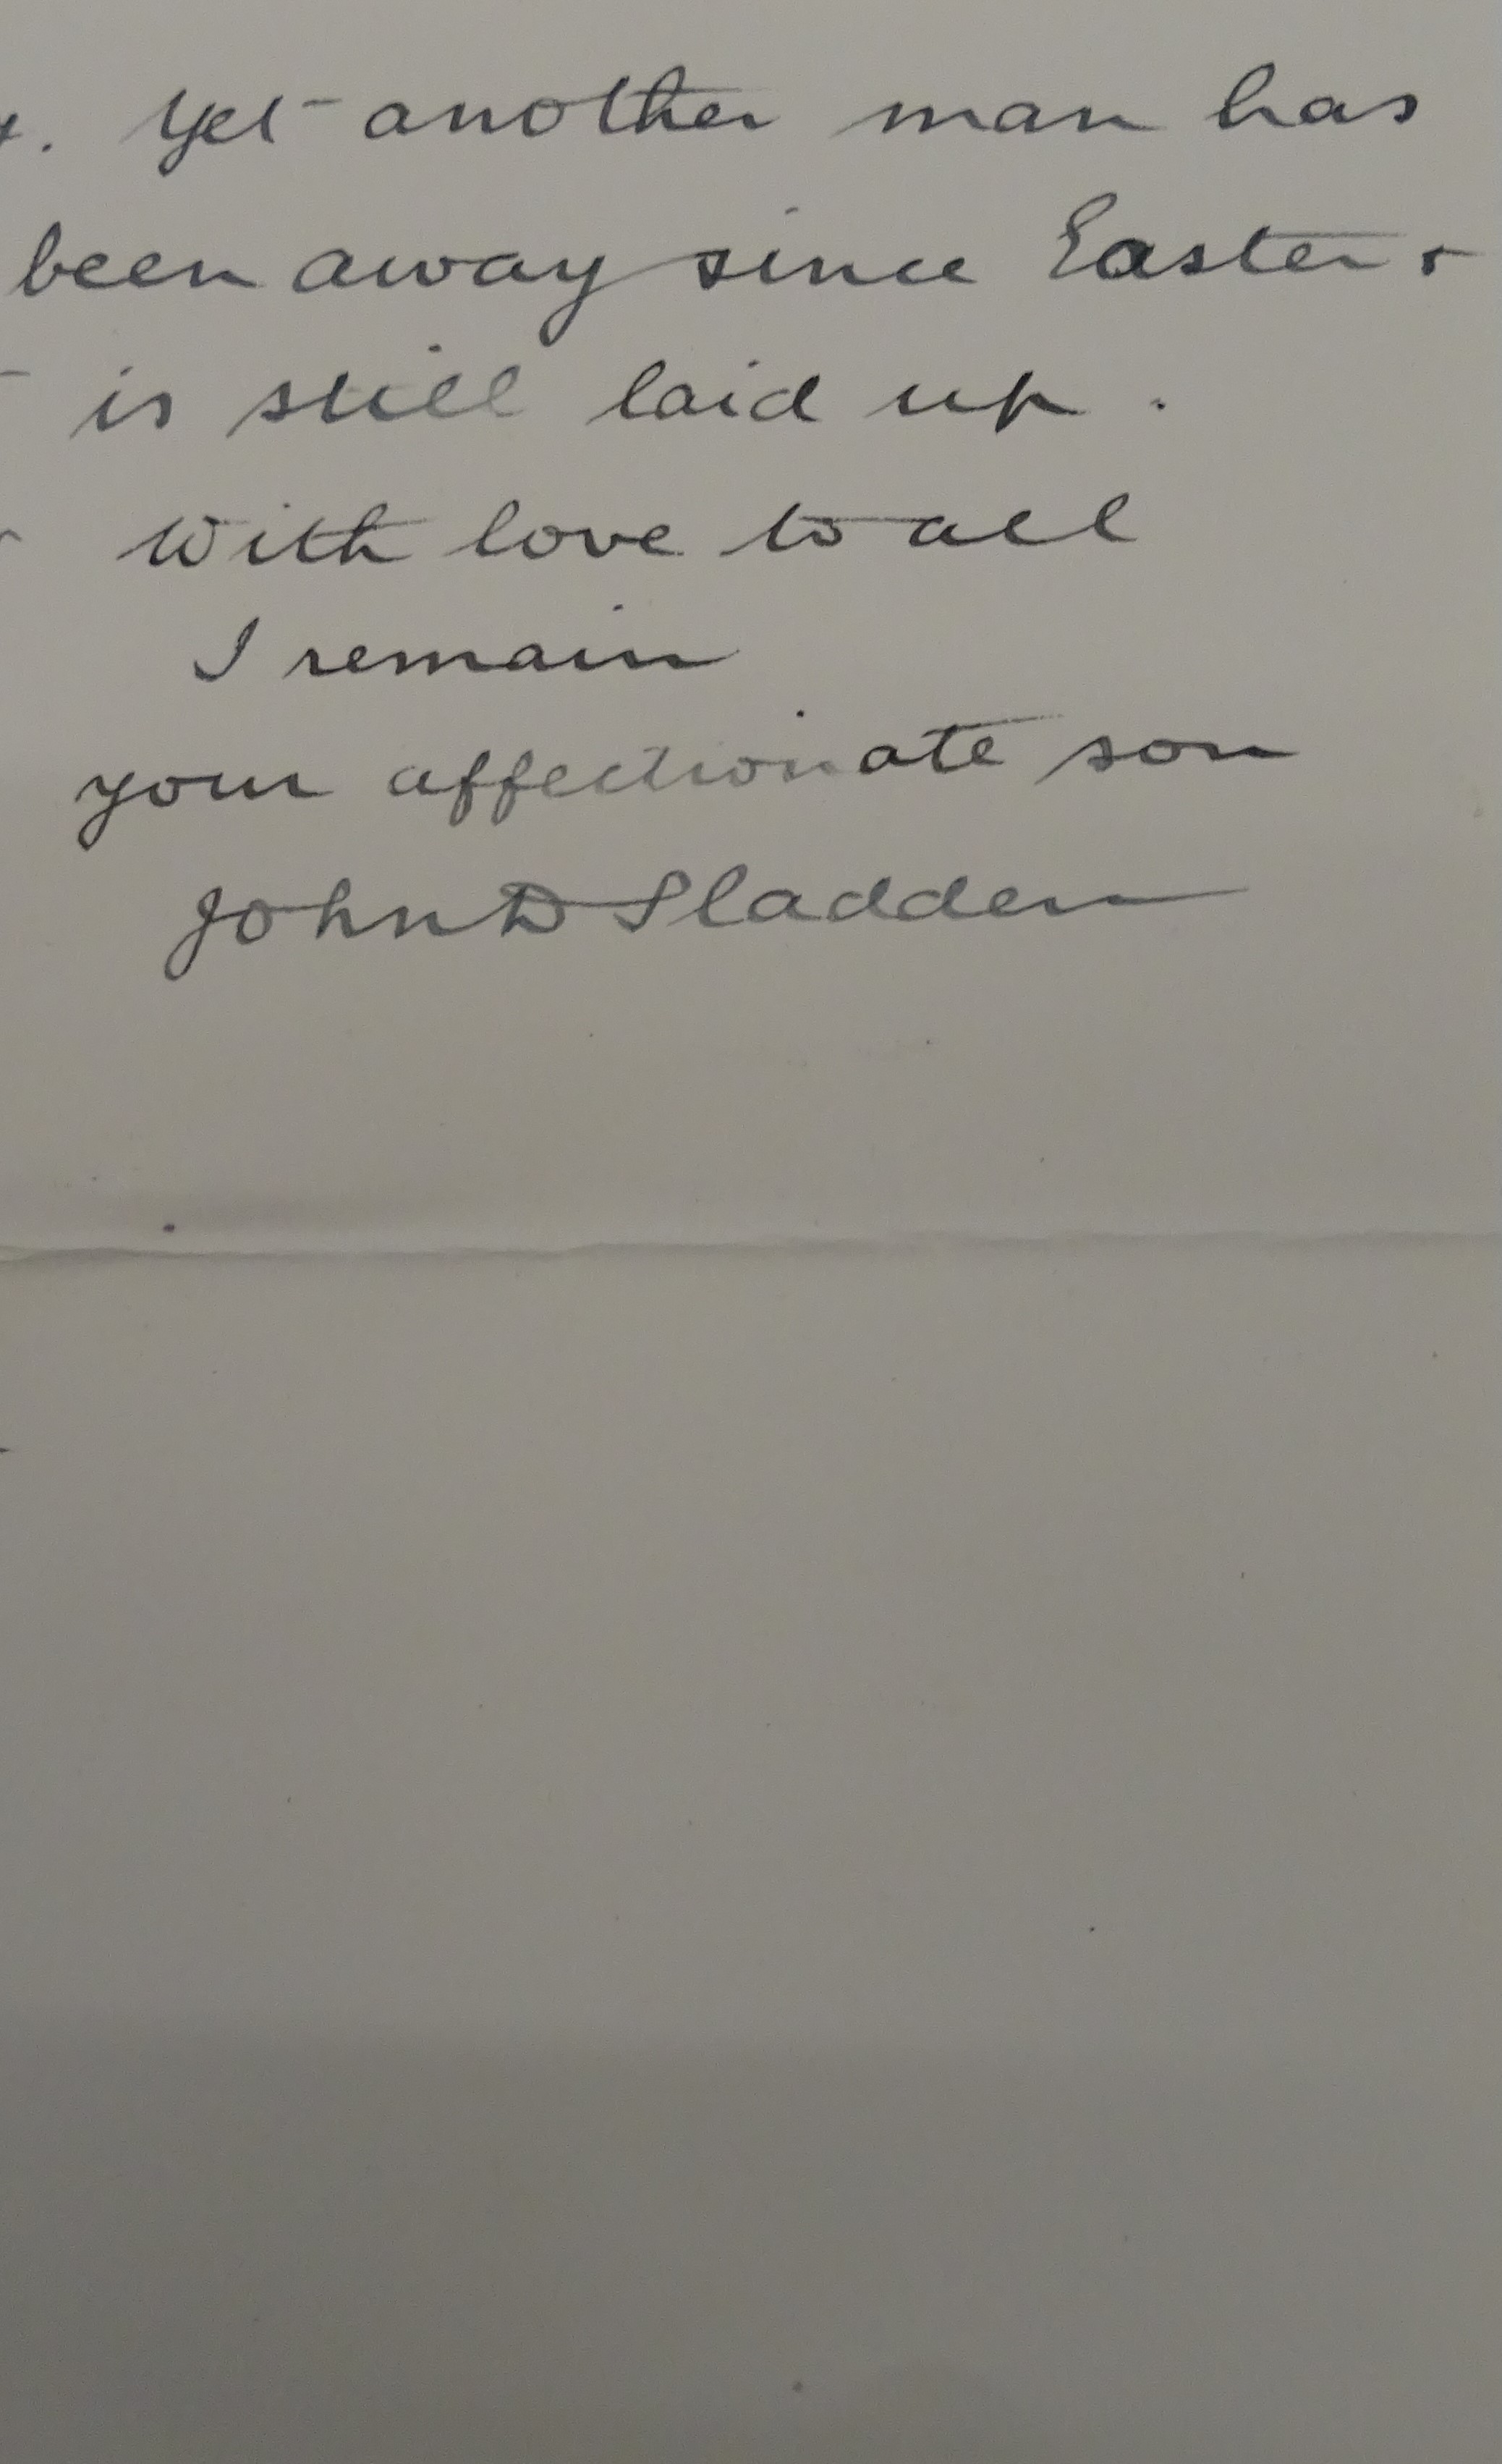 . Yet another man has
been away since Easter &
is still laid up.
With love to all
I remain
your affectionate son
John D Sladden